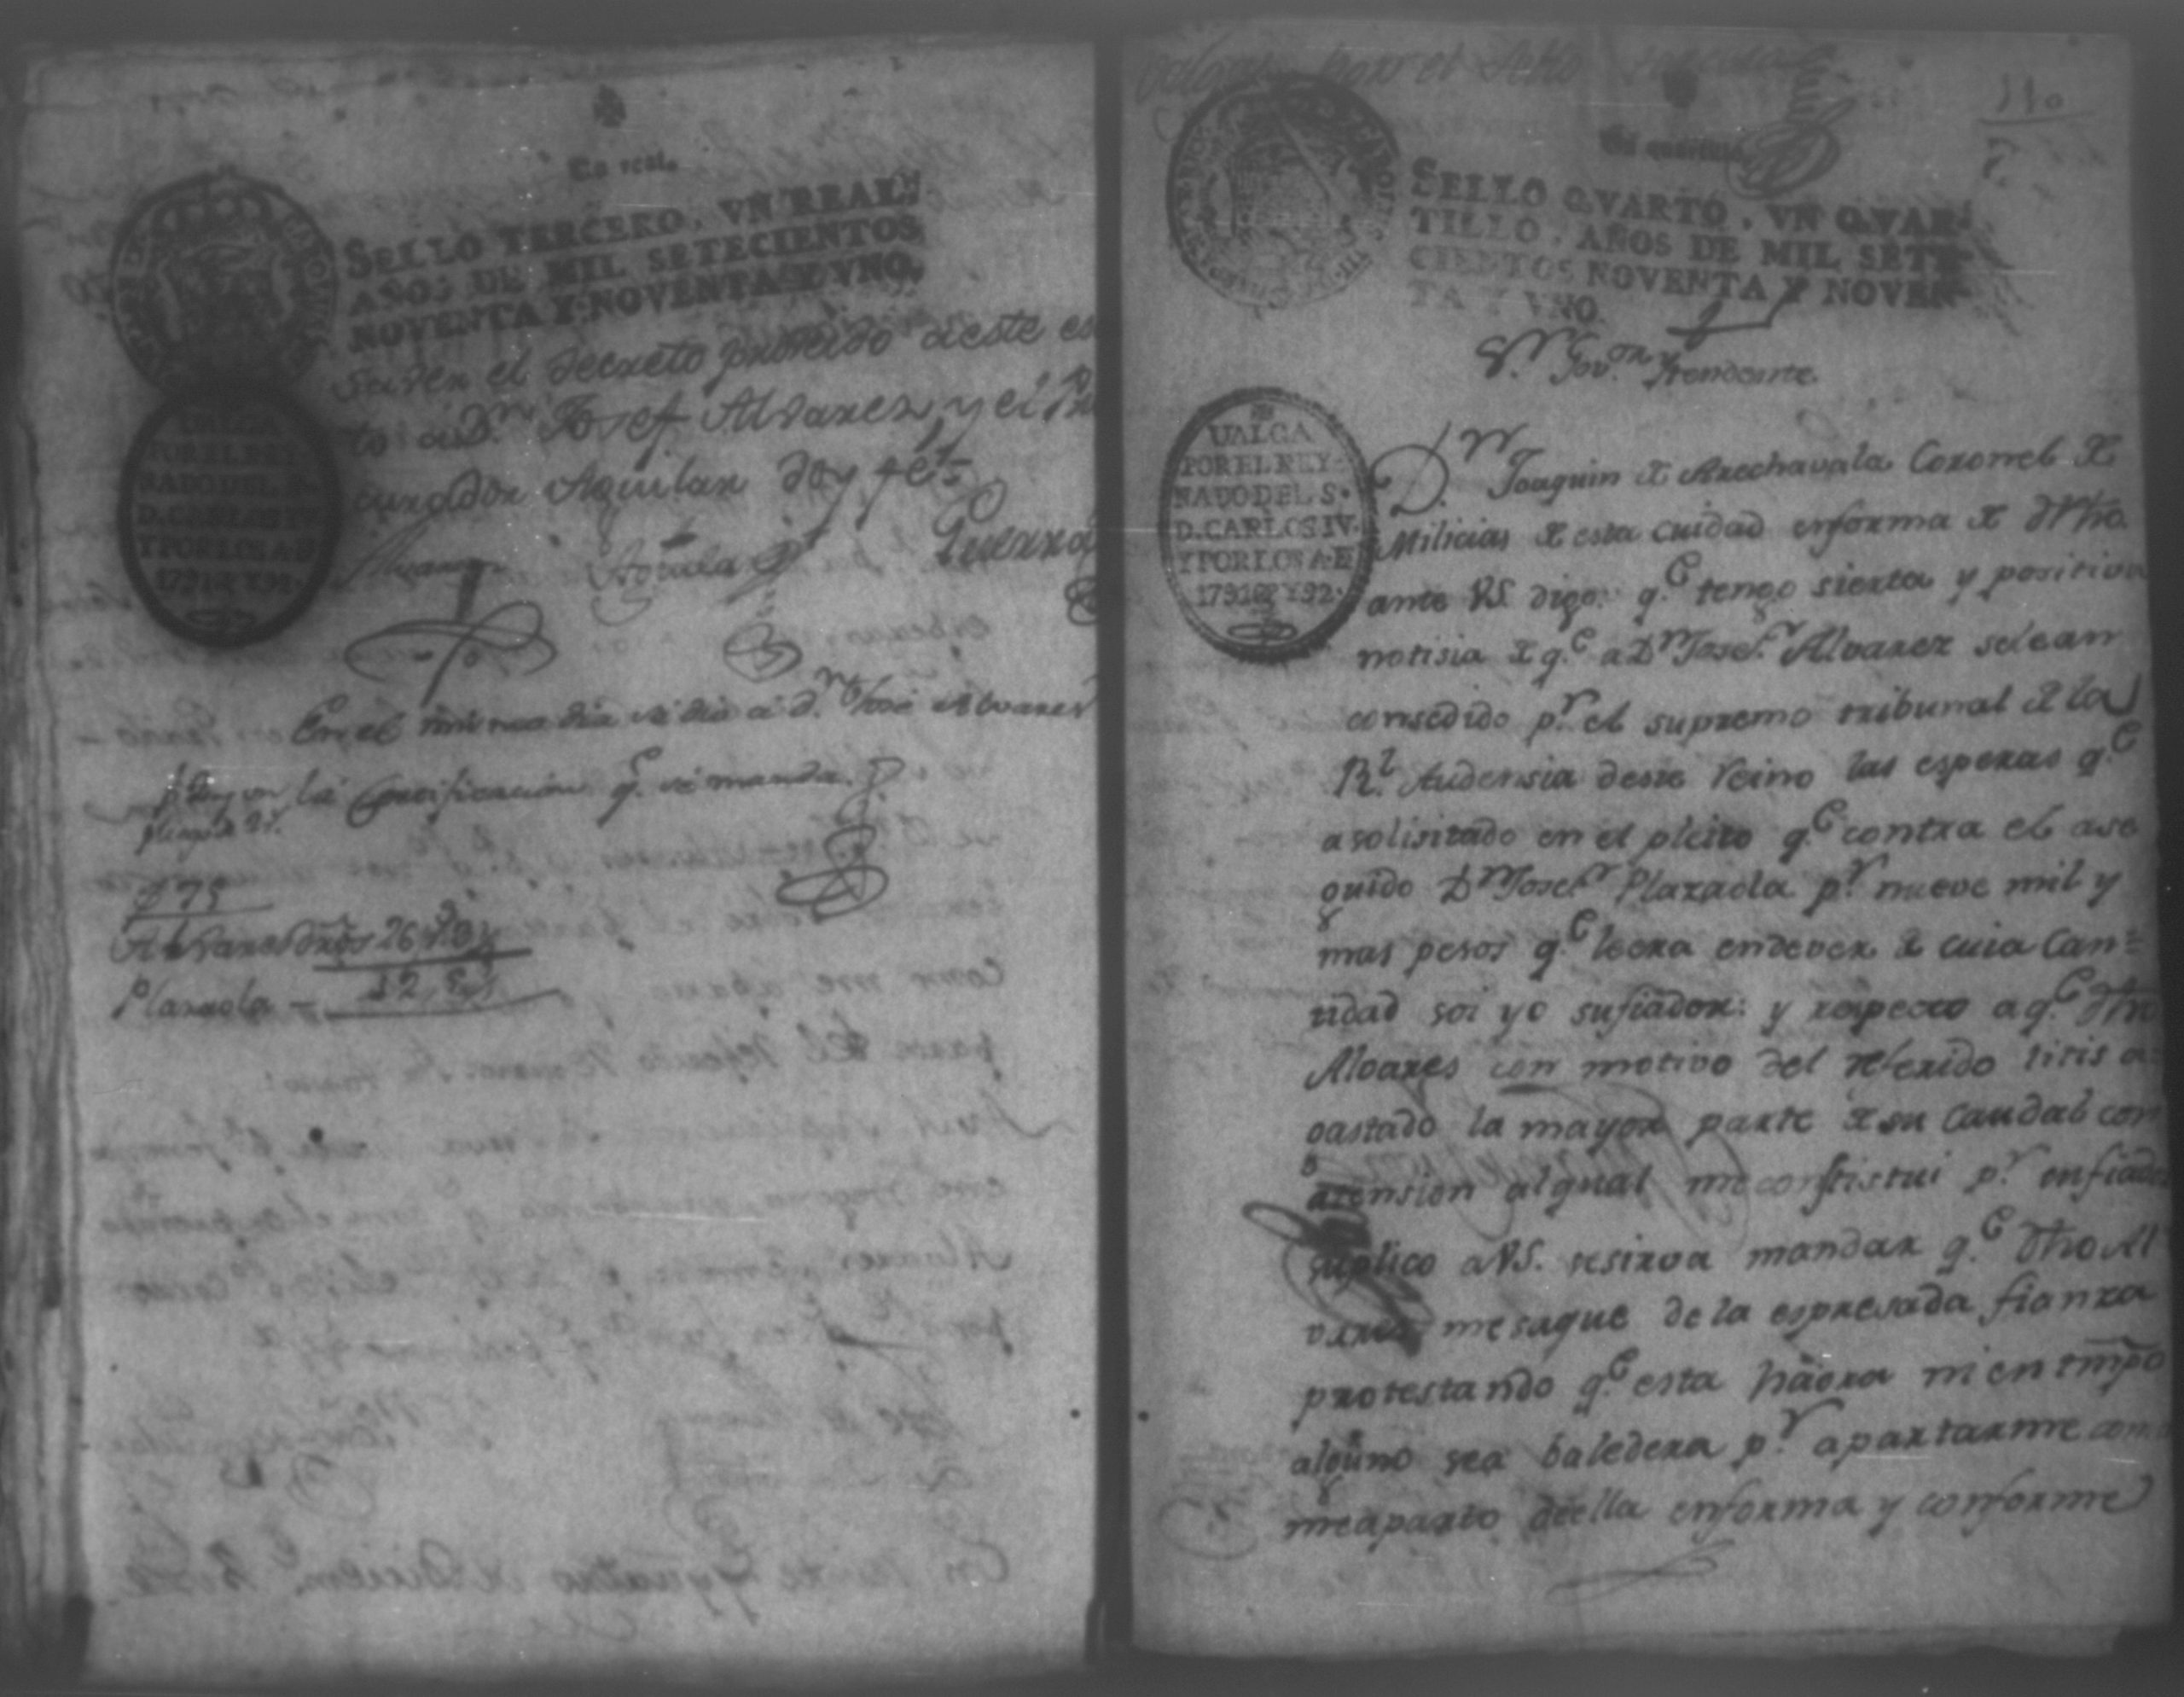 Un real.
SELLO TERCERO, VN REAL,
AÑOS DE MIL SETECIENTOS
NOVENTA Y NOVENTA Y VNO.
VALGA
POR EL REY
NADO DEL S.
D. CARLOS IV.
Y POR LOS A. DE
1791 92 Y 93.
el decreto proveido deste es
to a D.n Josef Alvarez, y el Pro
curador Aguilar doy feé
Alvarez Aguilar Guerrero
En el mismo dia se dio a D.n Jose Alvarez
la Certificacion q.e se manda.
Alvarez dros 26,
Plazaola - 12,
110
Un quartillo
SELLO QVARTO, VN QVAR-
TILLO, AÑOS DE MIL SETE-
CIENTOS NOVENTA Y NOVEN-
TA Y VNO.
S.r Gov.or Yntendente.
VALGA
POR EL REY
NADO DEL S.
D. CARLOS IV.
Y POR LOS A. DE
1791 92 Y 93.
D.n Joaquin de Arechavala Coronel de
Milicias de esta cuidad enforma de dho
ante VS. digo: q.e tengo sierta y positiva
notisia de q.e a D.n Josef Alvarez se le an
consedido p.r el supremo tribunal de la
R.l Audensia deste reino las esperas q.e
a solisitado en el pleito q.e contra el a se
guido D.n Josef Plazaola p.r nueve mil y
mas pesos q.e le era endever de cuia can-
tidad soi yo sufiador: y respecto a q.e dho
Alvares con motivo del referido litis a
gastado la mayor parte de su caudal con
atension al qual me constistui p.r enfiador
suplico a VS. se sirva mandar q.e dho Al
vares me saque de la espresada fianza
protestando q.e esta haora ni en tmpo
alguno sea baledera p.r apartarme como
me aparto de ella enforma y conforme